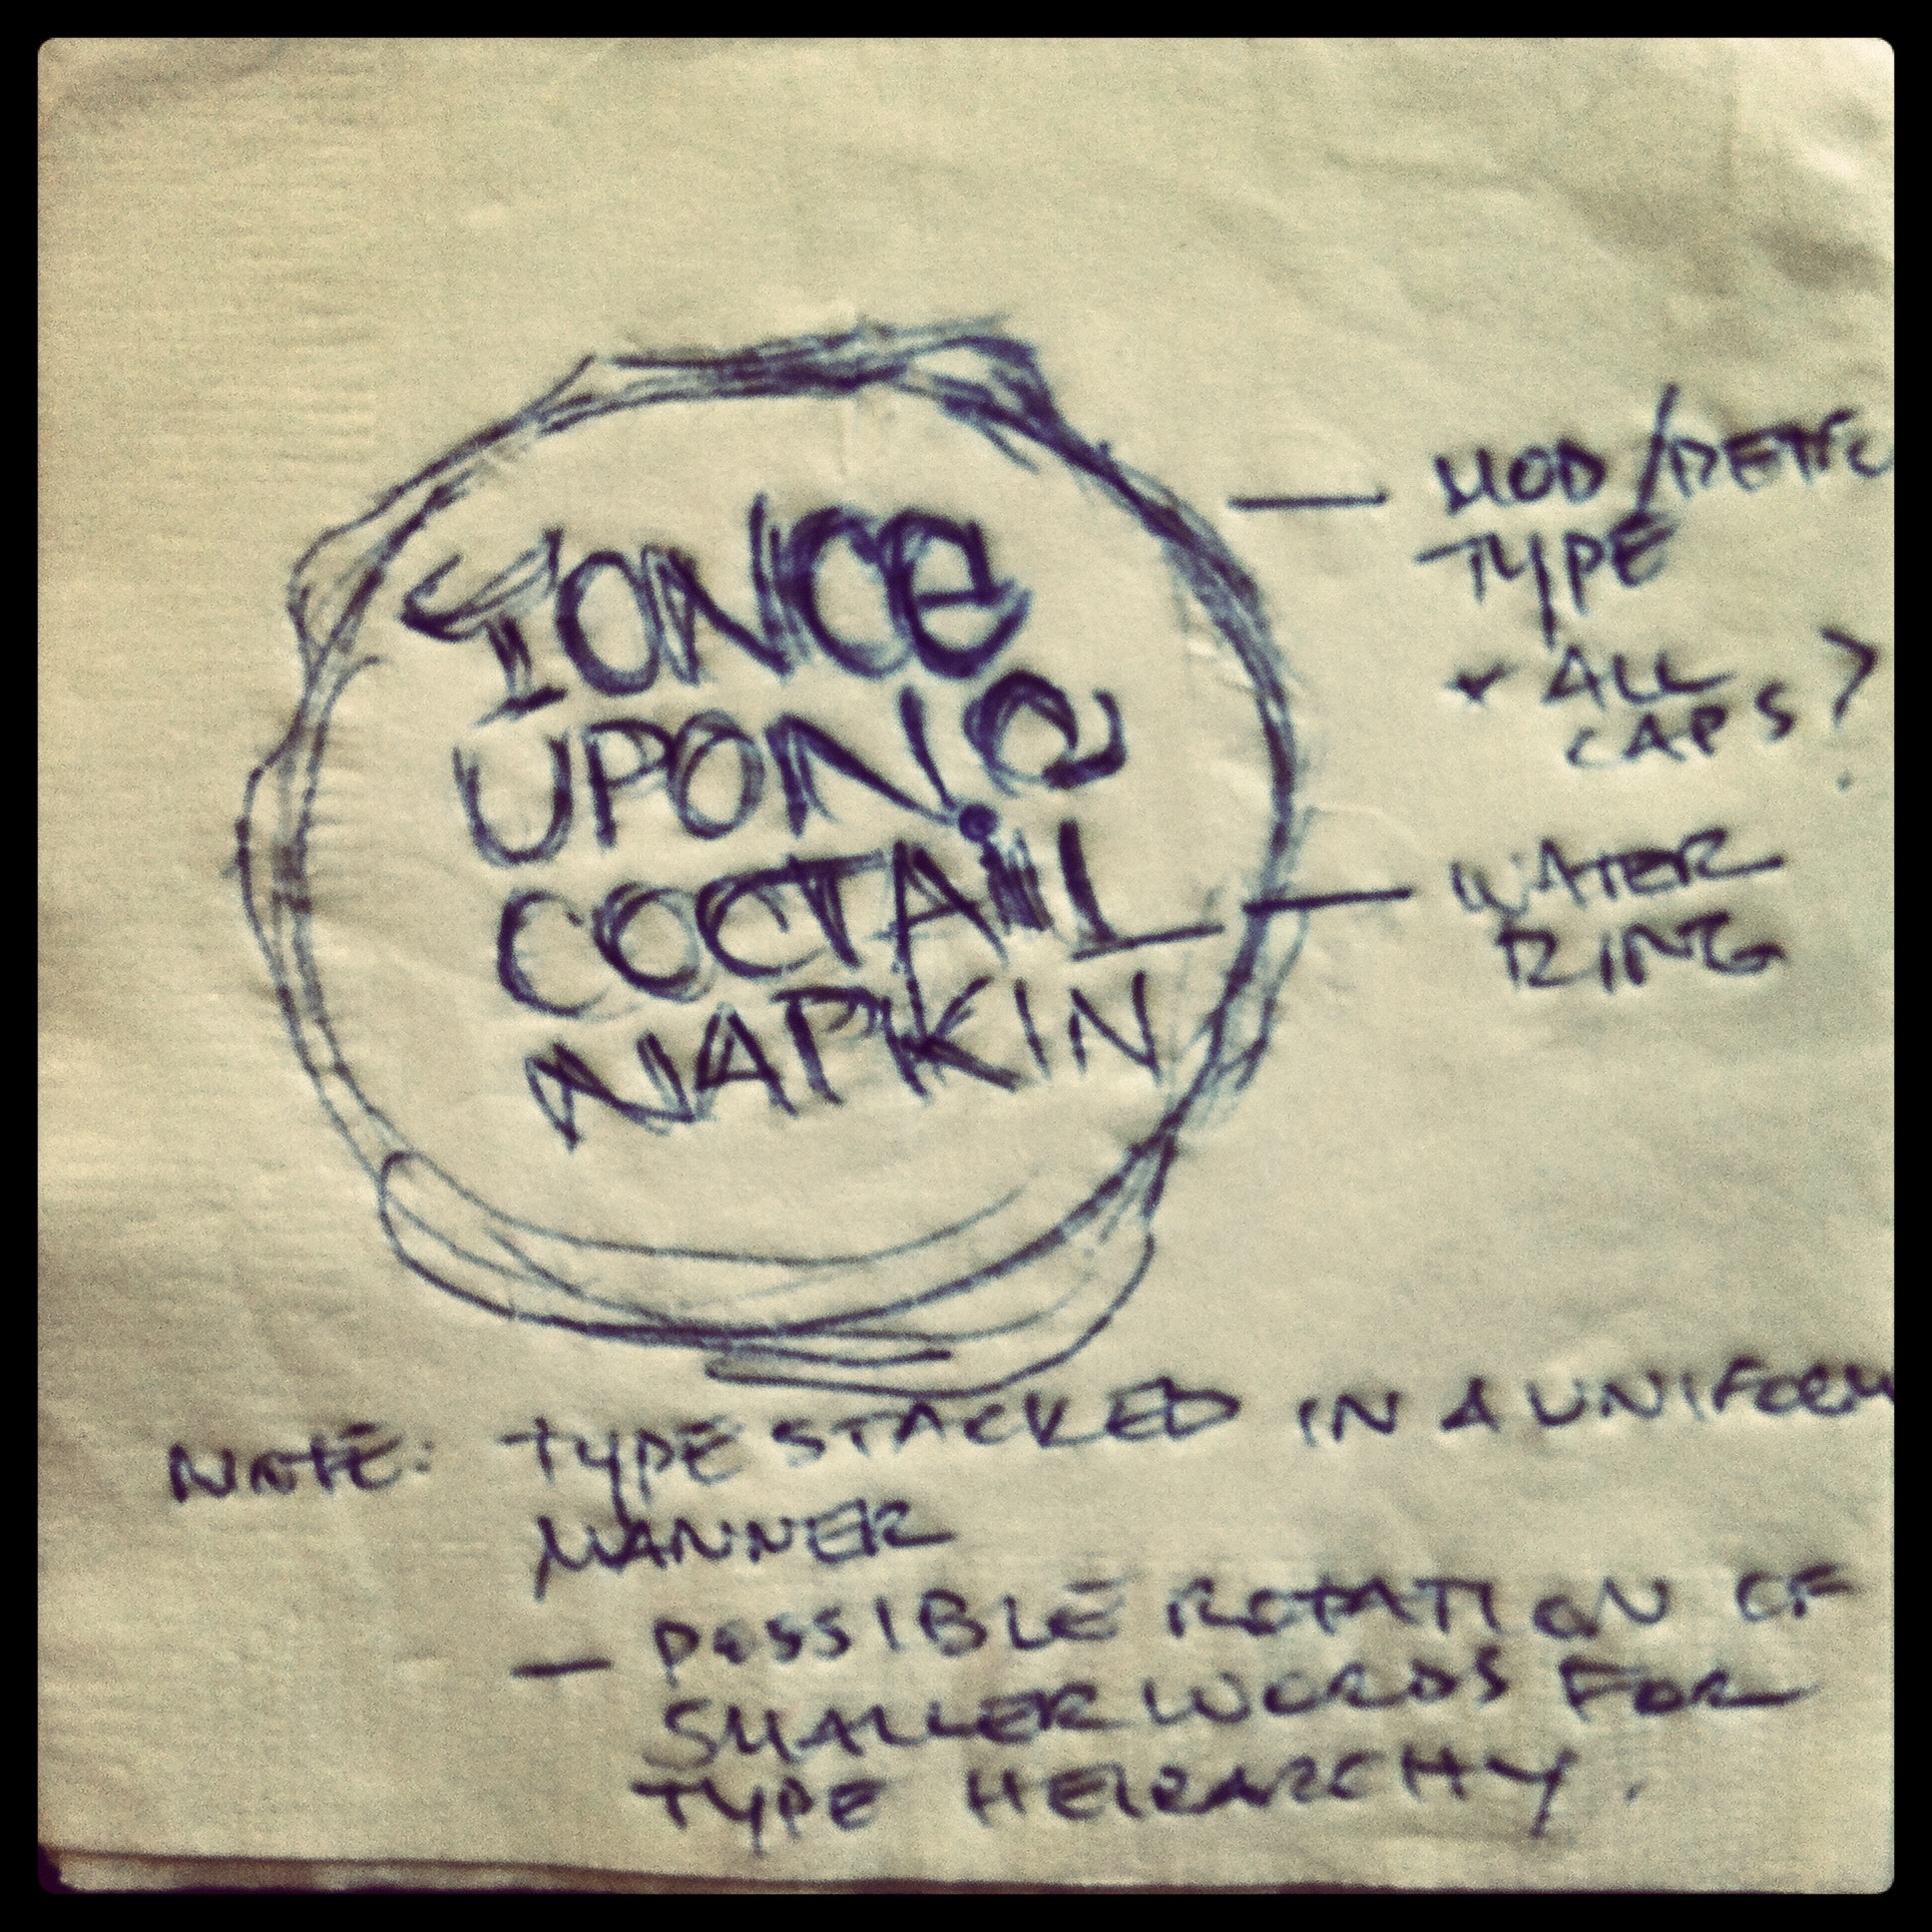 I ONCe
UPON a
COCTAiL
NAPKIN
— MOD/RETRO
TYPE
* ALL
CAPS?
— WATER
RING
NOTE: TYPE STACKED IN A UNIFORM
MANNER
— POSSIBLE ROTATION OF
SMALLER WORDS FOR
TYPE HEIRARCHY.